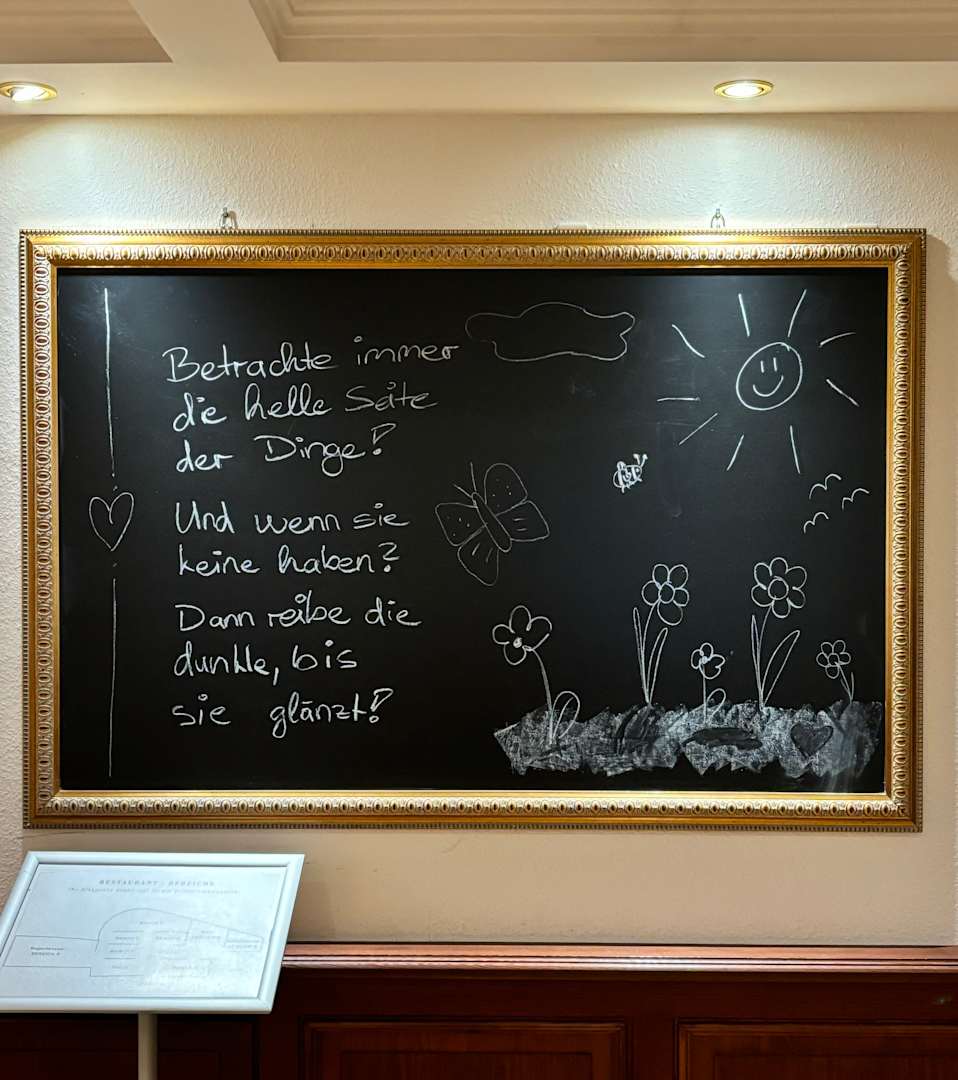 Betrachte immer
die helle Seite
der Dinge!
Und wenn sie
keine haben?
Dann reibe die
dunkle, bis
sie glänzt!
RESTAURANT - BEREICHE